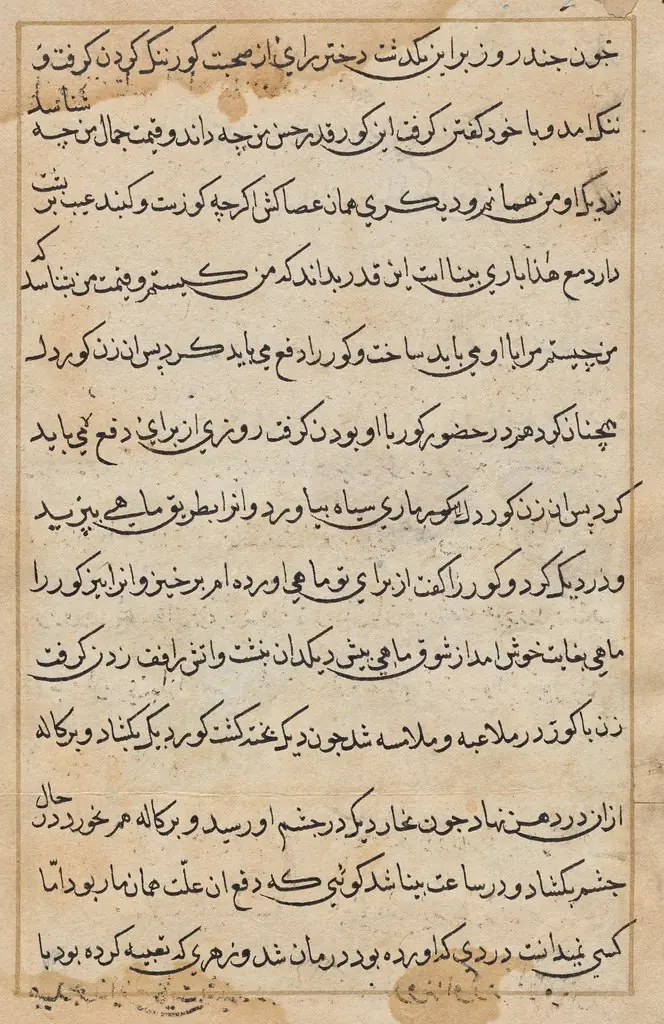 جون جند روز براین بکدشت دختر رای از صحبت کور ننک کردن کرفت و
ننک امد و با خود کفتن کرفت این کور قدر حسن من چه داند و قیمت جمال من چه شناسد
نزدیک او من همانم و دیکری همان عصاکش اکرچه کوزست و کنبد عیب بر پشت
دارد مع هذا باری بینا است این قدر بداند که من کیستم و قیمت من بشناسد که
من چیستم مرا با او می باید ساخت و کور را دفع می باید کرد پس ان زن کوردل
همچنان کرد هم در حضور کور با او بودن کرفت روزی از برای دفع می باید
کرد پس ان زن کوردل کور ماری سیاه بیاورد و انرا بطریق ماهی ببزید
و در دیک کرد و کور را کفت از برای تو ماهی اورده ام برخیز و انرا ببز کور را
ماهی بغایت خوش امد از شوق ماهی پیش دیکدان بنشت و اتش را فف زدن کرفت
زن با کوز در ملاعبه و ملامسه شد جون دیک بخته کشت کور دیک بکشاد و برکاله
ازان در دهن نهاد جون بخار دیک در جشم او رسید و برکاله هم بخورد در حال
جشم بکشاد و در ساعت بینا شد کوئیی که دفع ان علّت همان مار بود امّا
کسی نمیدانت دردی که اورده بود درمان شد و زهری که تعبیه کرده بود با